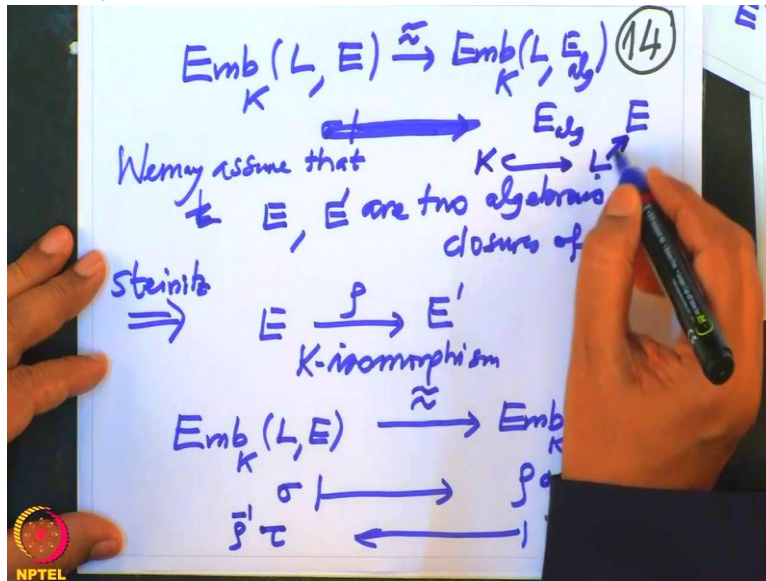 Emb_K (L, E) ≅→ Emb_K (L, E_alg) 14
E_alg E
We may assume that K ↪ L
E, E' are two algebraic
closures of
Steinitz
⇒ E —ρ→ E'
K-isomorphism
Emb_K (L, E) ≈→ Emb_K
σ ↦ ρσ
ρ^{-1} τ ←
E
NPTEL